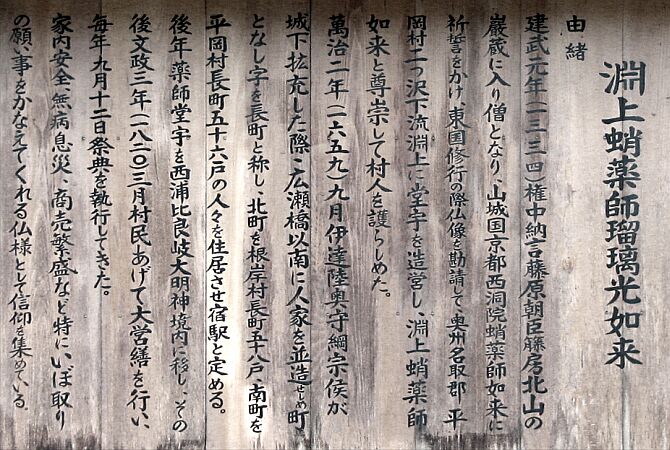 淵上蛸薬師瑠璃光如来
由緒
建武元年(一三三四)権中納言藤原朝臣藤房北山の
巌蔵に入り僧となり、山城国京都西洞院蛸薬師如来に
祈誓をかけ、東国修行の際仏像を勘請して、奥州名取郡平
岡村一つ沢下流淵上に堂宇を造営し、淵上蛸薬師
如来と尊崇して村人を護らしめた。
萬治二年(一六五九)九月伊達陸奥守綱宗侯が
城下拡充した際、広瀬橋以南に人家を並造せしめ町
となし字を長町と称し、北町を根岸村長町五十八戸、南町を
平岡村長町五十六戸の人々を住居させ宿駅と定める。
後年薬師堂宇を西浦比良岐大明神境内に移し、その
後文政三年(一八二〇)三月村民あげて大営繕を行い、
毎年九月十二日祭典を執行してきた。
家内安全、無病息災、商売繁盛など特にいぼ取り
の願い事をかなえてくれる仏様として信仰を集めている。